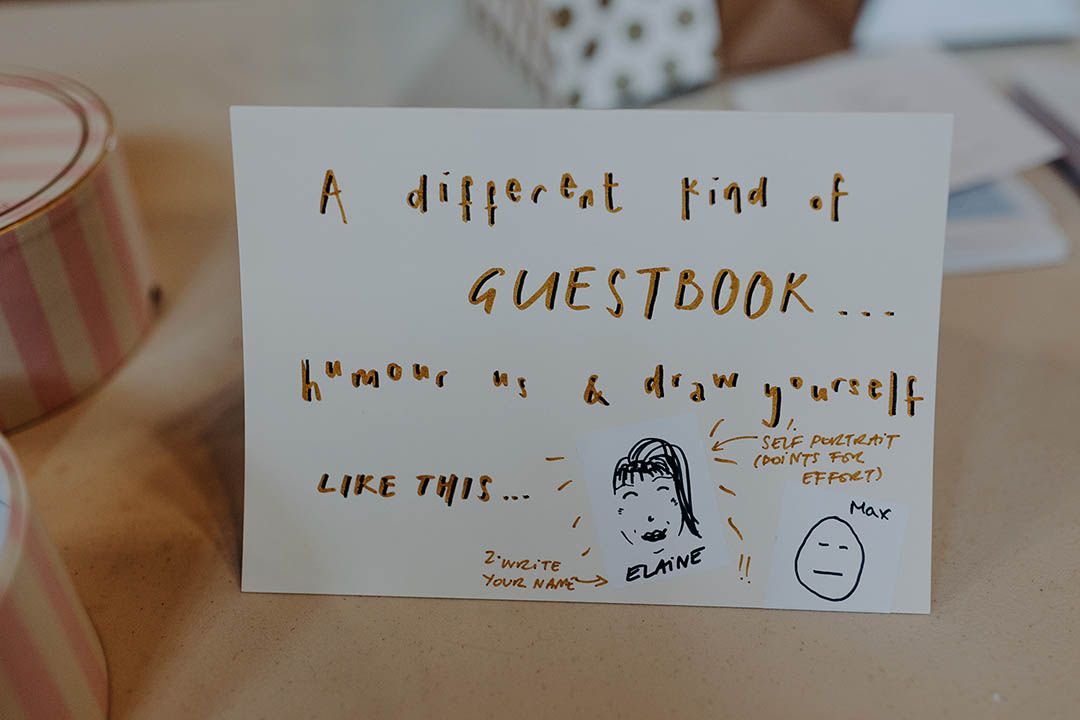 A different kind of
GUESTBOOK...
humour us & draw yourself
LIKE THIS...
1. SELF PORTRAIT
(POINTS FOR
EFFORT)
Max
2. WRITE
YOUR NAME
ELAINE
!!